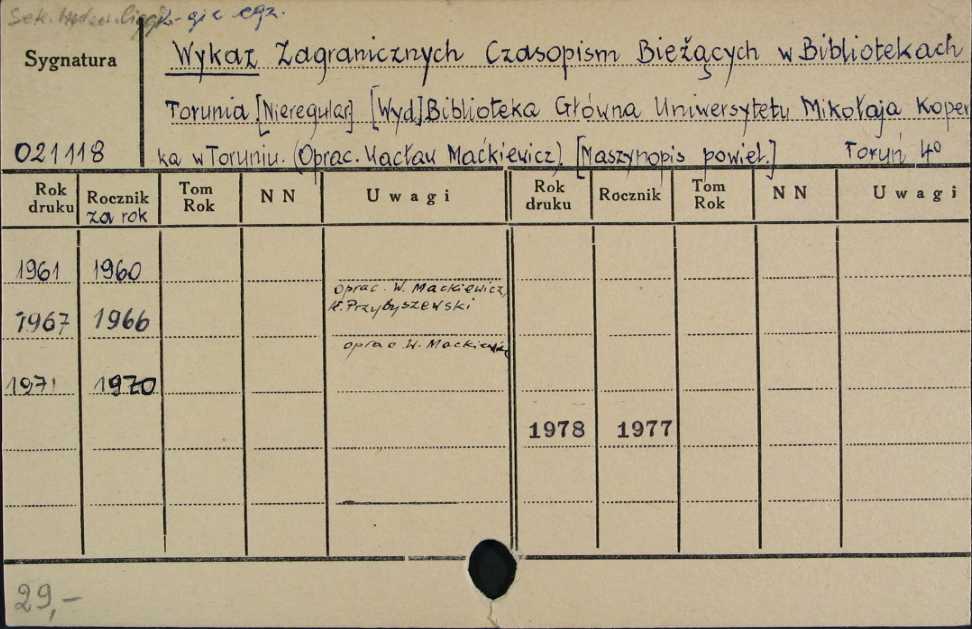 2-gie egz.
Sygnatura
Wykaz Zagranicznych Czasopism Bieżących w Bibliotekach
Torunia [Nieregular] [Wyd] Biblioteka Główna Uniwersytetu Mikołaja Koper
021118
ka w Toruniu. (Oprac. Wacław Maćkiewicz) [Maszynopis powiel.] Toruń 4o
Rok druku Rocznik Tom Rok NN Uwagi Rok druku Rocznik Tom Rok NN Uwagi
za rok
1961 1960
oprac. W. Mackiewicz,
H. Przybyszewski
1967 1966
oprac W. Mackiewicz
1971 1970
1978 1977
29,-